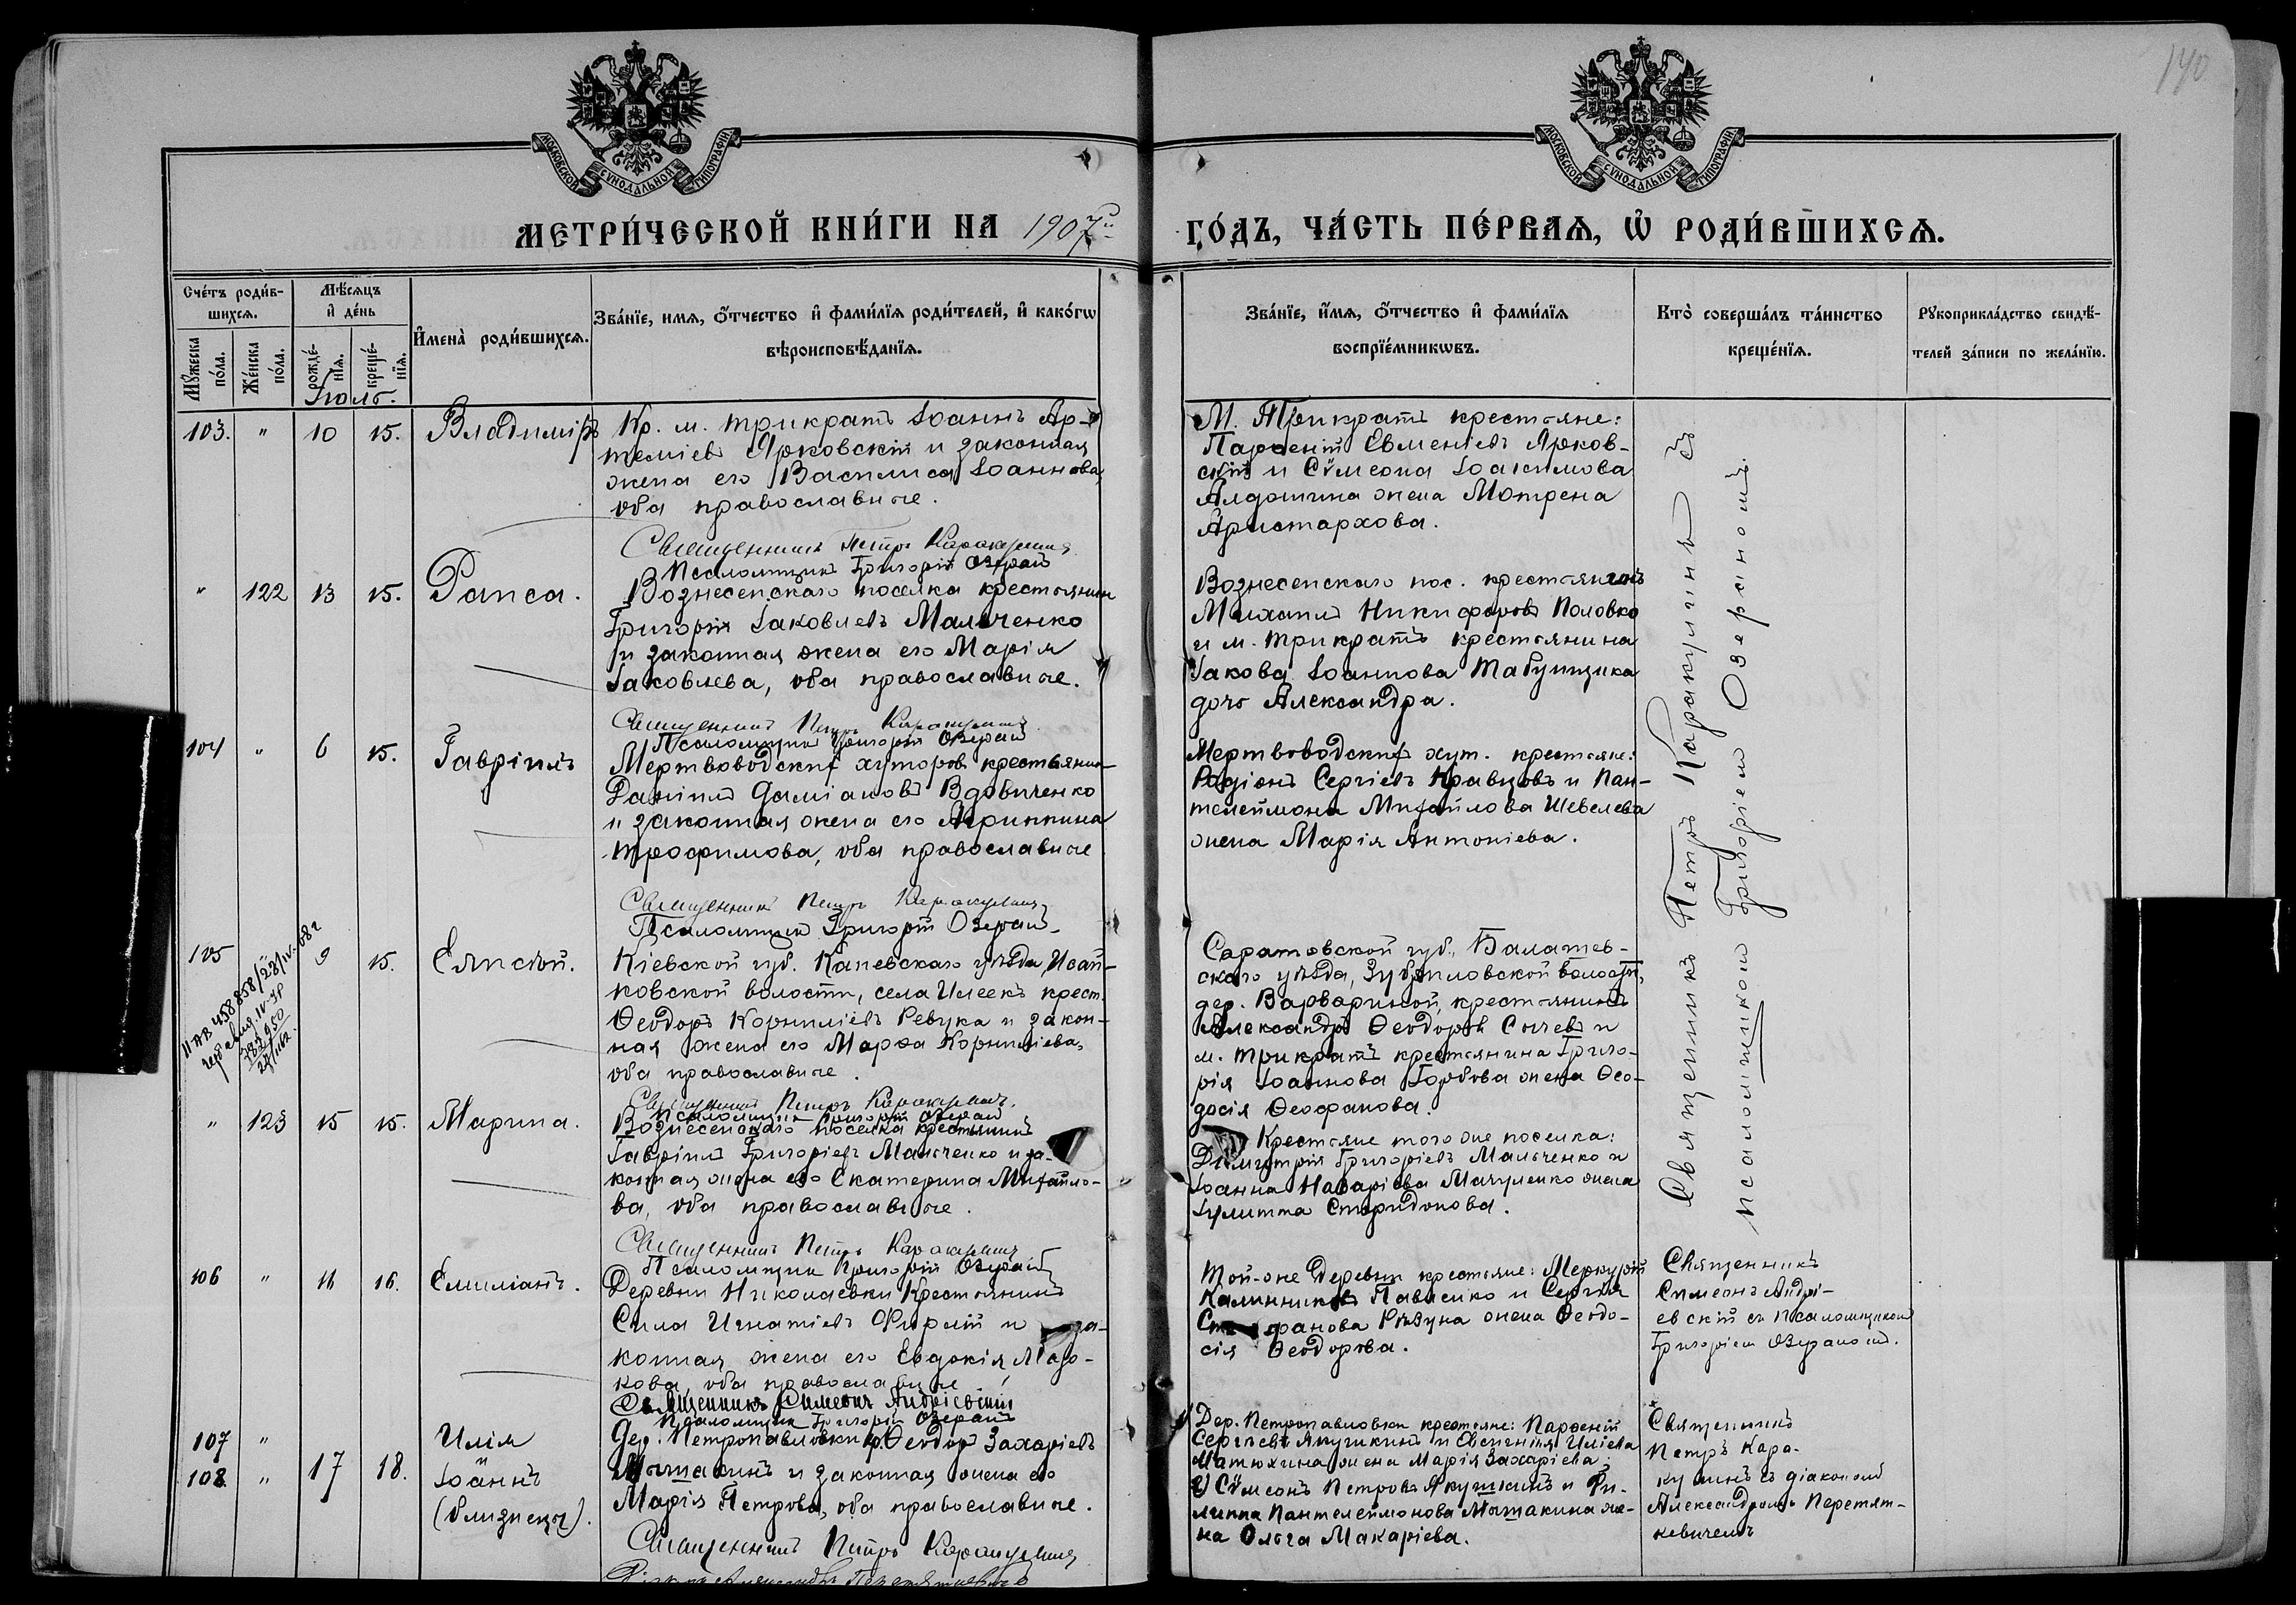 140
МОСКОВСКОЙ СѴНОДАЛЬНОЙ ТИПОГРАФІИ
МОСКОВСКОЙ СѴНОДАЛЬНОЙ ТИПОГРАФІИ
МЕТРИ́ЧЕСКОЙ КНИ́ГИ НА 1907й
ГО́ДЪ, ЧА́СТЬ ПЕ́РВАѦ, Ѡ РОДИ́ВШИХСѦ.
Сче́тъ роди́в-
шихсѧ.
Мѣ́сѧцъ
и де́нь
Мꙋ́жеска по́ла.
Же́нска по́ла.
рожде́-
нїѧ.
креще́-
нїѧ.
Имена̀ роди́вшихсѧ.
Зва́нїе, имѧ, ѻ҆́тчество и фами́лїѧ роди́телей, и како́гѡ
вѣроисповѣ́данїѧ.
Зва́нїе, и҆́мѧ, ѻ҆́тчество и фами́лїѧ
воспрїе́мникѡвъ.
Кто̀ соверша́лъ та́инство
креще́нїѧ.
Рꙋкоприкла́дство свидѣ́-
телей за́писи по жела́нїю.
Іюль.
103. " 10 15. Владиміръ
Кр. м. Трикратъ Іоаннъ Ар-
теміевъ Ярковскій и законная
жена его Василиса Іоаннова,
оба православные.
Священникъ Петръ Каракулинъ
Псаломщикъ Григорій Озеранъ
М. Трикратъ крестьяне:
Парѳеній Евменіевъ Ярков-
скій и Сѷмеона Іоакимова
Алдошина жена Мотрена
Аристархова.
" 122 13 15. Раиса.
Вознесенскаго поселка крестьянинъ
Григорій Іаковлевъ Мальченко
и законная жена его Марія
Іаковлева, оба православные.
Священникъ Петръ Каракулинъ
Псаломщикъ Григорій Озеранъ
Вознесенскаго пос. крестьянинъ
Михаилъ Никифоровъ Половко
и м. Трикратъ крестьянина
Іакова Іоаннова Табунщика
дочь Александра.
104 " 6 15. Гавріилъ
Мертвоводскихъ хуторовъ крестьянинъ
Даніилъ Даміановъ Вдовиченко
и законная жена его Агриппина
Трофимова, оба православные
Священникъ Петръ Каракулинъ
Псаломщикъ Григорій Озеранъ
Мертвоводскихъ хут. крестьяне:
Родіонъ Сергіевъ Кравцовъ и Пан-
телеймона Михайлова Шевелева
жена Марія Антоніева.
105 " 9 15. Елисѣй.
Кіевской губ. Каневскаго уѣзда, Исай-
ковской волости, села крест.
Ѳеодоръ Корниліевъ Ревука и закон-
ная жена его Марѳа Корниліева,
оба православные.
Священникъ Петръ Каракулинъ
Псаломщикъ Григорій Озеранъ
Саратовской губ., Балашев-
скаго уѣзда, Зубриловской волости,
дер. Варвариной, крестьянинъ
Александръ Ѳеодоровъ Сычевъ и
м. Трикратъ крестьянина Григо-
рія Іоаннова Горбова жена Ѳео-
досія Ѳеофанова.
" 123 15 15. Марина.
Вознесенскаго поселка крестьянинъ
Гавріилъ Григоріевъ Мальченко и за-
конная жена его Екатерина Михайло-
ва, оба православные.
Священникъ Петръ Каракулинъ
Псаломщикъ Григорій Озеранъ
Крестьяне того же поселка:
Димитрій Григоріевъ Мальченко и
Іоанна Назаріева жена
Іулитта Спиридонова.
Священникъ Петръ Каракулинъ съ
псаломщикомъ Григоріемъ Озераномъ.
106 " 16. Емиліанъ.
Деревни Николаевки крестьянинъ
Сила Игнатіевъ и за-
конная жена его Евдокія
оба православные
Священникъ Симеонъ Андріевскій
Псаломщикъ Григорій Озеранъ
Той-же деревни крестьяне: Меркурій
Калинниковъ Павленко и Сергія
Стефанова жена Ѳеодо-
сія Ѳеодорова.
Священникъ
Симеонъ Андрі-
евскій съ псаломщикомъ
Григоріемъ Озераномъ.
107 " Илія
108. " 17 18. и Іоаннъ
(близнецы).
Дер. Петропавловки кр. Ѳеодоръ Захаріевъ
Мыташинъ и законная жена его
Марія Петрова, оба православные.
Священникъ Петръ Каракулинъ
Дер. Петропавловки крестьяне: Парѳеній
Сергіевъ Якушкинъ и Евгенія Иліева
Матюхина жена Марія Захаріева;
2) Сѷмеонъ Петровъ Якушкинъ и Фи-
липпа Пантелеймонова Мыташина же-
на Ольга Макаріева.
Священникъ
Петръ Кара-
кулинъ съ діакономъ
Александромъ Перетят-
кевичемъ